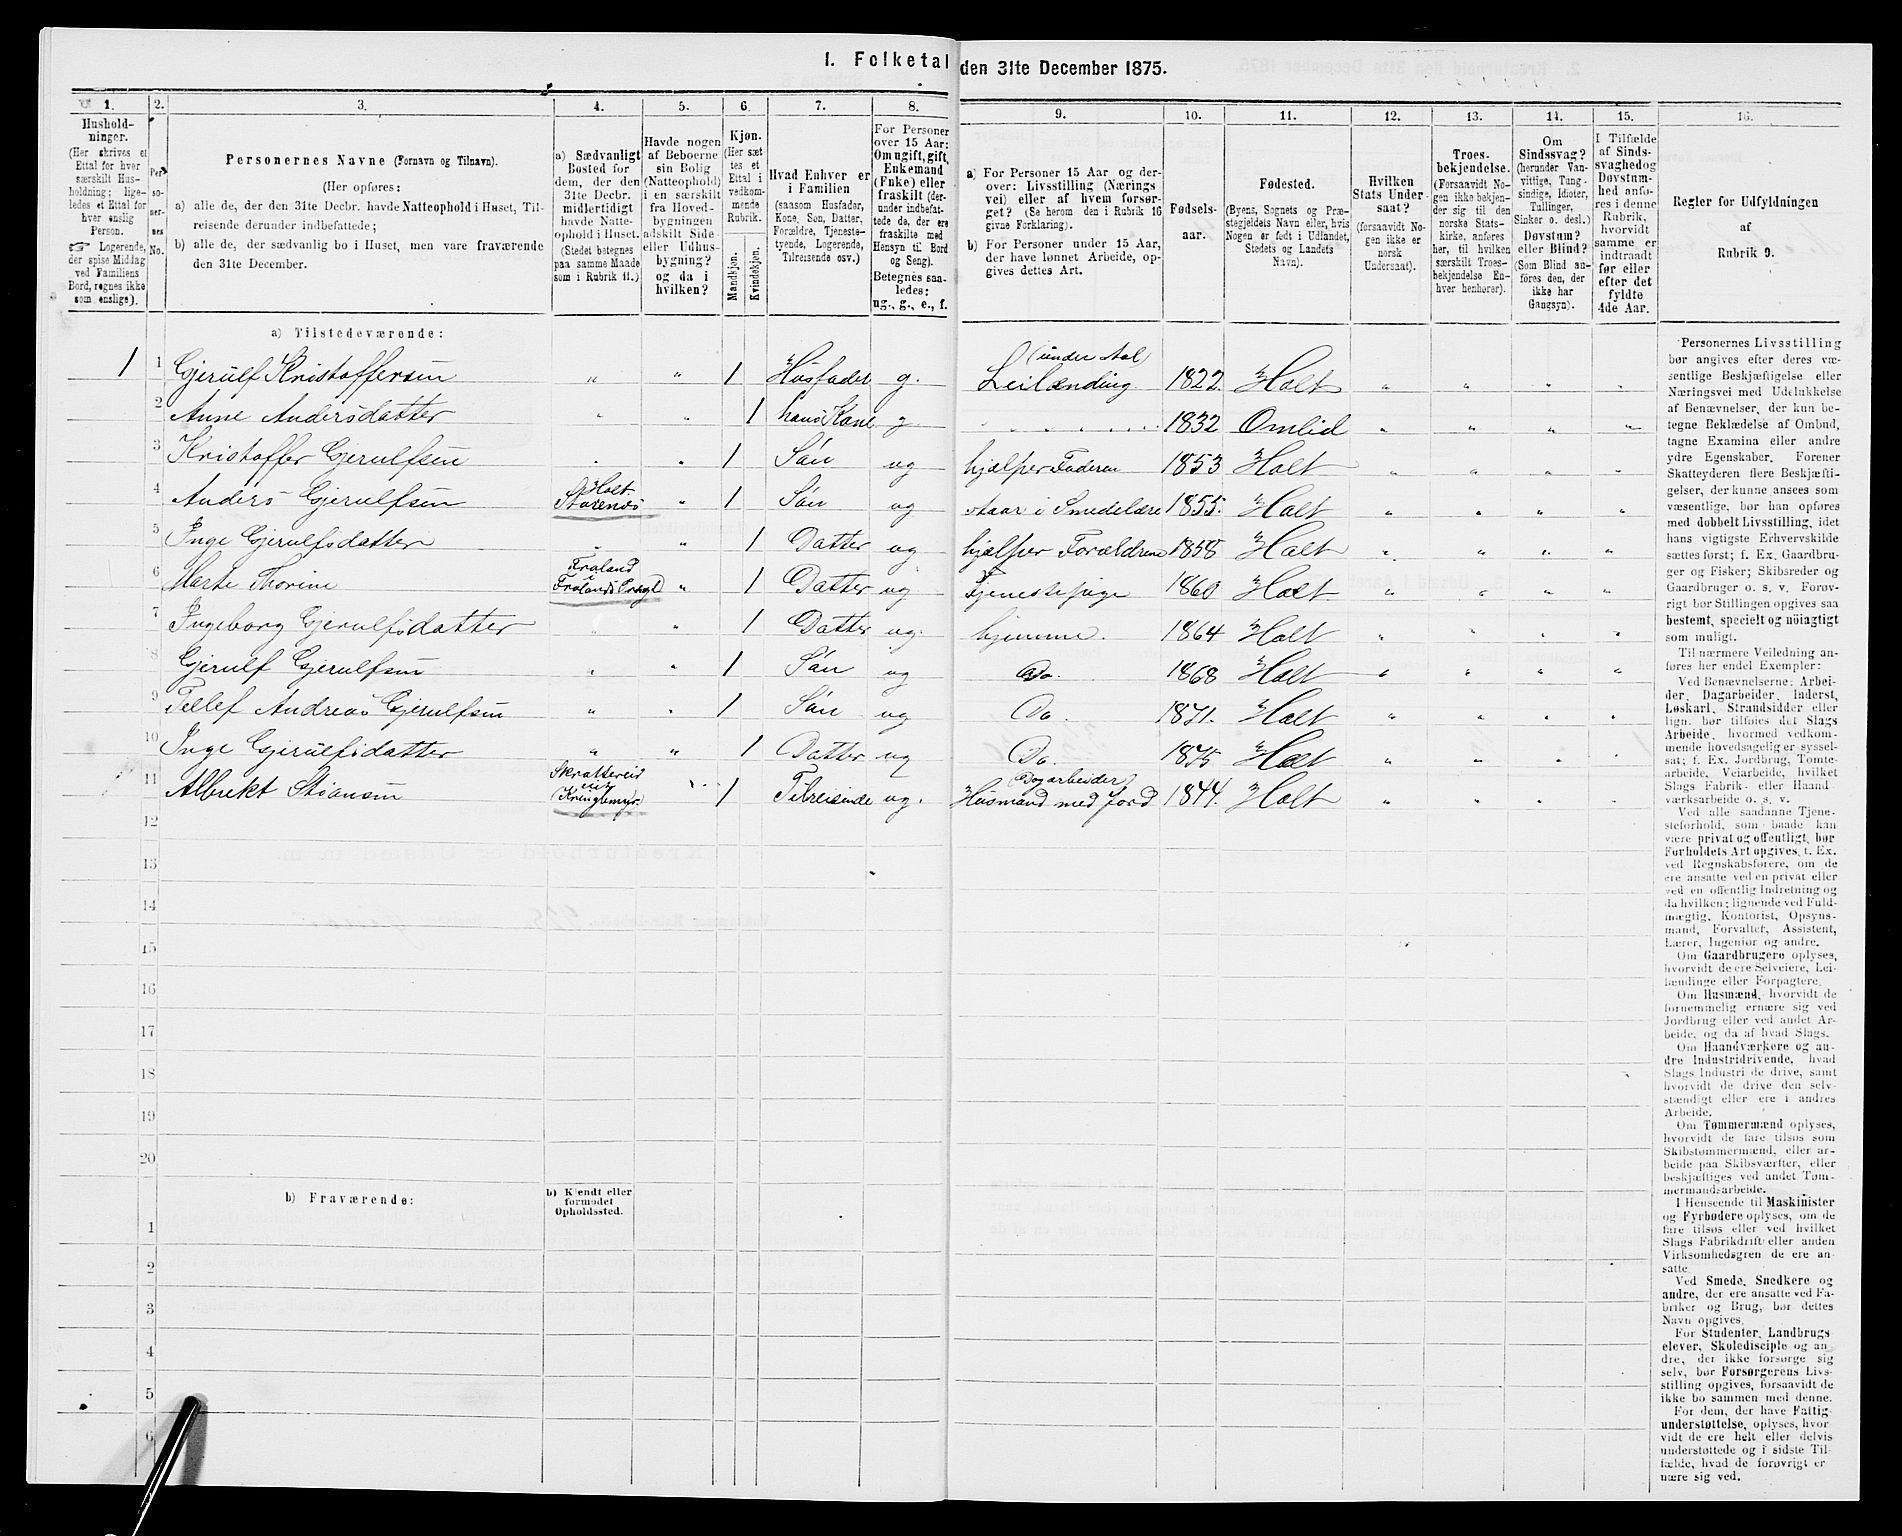 1. Folketal den 31te December 1875.
1. 2. 3. 4. 5. 6. 7. 8. 9. 10. 11. 12. 13. 14. 15. 16.
Husholdninger.
(Her skrives et
Ettal for hver
særskilt Husholdning;
ligeledes et Ettal for
hver enslig
Person.
☞ Logerende,
der spise Middag
ved Familiens
Bord, regnes ikke
som enslige).
Personernes No.
Personernes Navne (Fornavn og Tilnavn).
(Her opføres:
a) alle de, der den 31te Decbr. havde Natteophold i Huset, Tilreisende derunder indbefattede;
b) alle de, der sædvanlig bo i Huset, men vare fraværende
den 31te December.
a) Sædvanligt
Bosted for
dem, der den
31te Decbr.
midlertidigt
havde Natteophold i Huset.
(Stedet betegnes
paa samme Maade
som i Rubrik 11.)
Havde nogen
af Beboerne
sin Bolig
(Natteophold)
i en særskilt
fra Hovedbygningen
adskilt Side-
eller Udhusbygning?
og da i
hvilken?
Kjøn.
(Her sættes et
Ettal i
vedkommende
Rubrik.
Mandkjøn.
Kvindekjøn.
Hvad Enhver er
i Familien
(saasom Husfader,
Kone, Søn, Datter,
Forældre, Tjenestetyende, Logerende,
Tilreisende osv.)
For Personer
over 15 Aar:
Om ugift, gift,
Enkemand
(Enke) eller
fraskilt (derunder indbefattede da, der ere
fraskilte med
Hensyn til Bord
og Seng).
Betegnes saaledes:
ug., g., e., f.
a) For Personer 15 Aar og derover: Livsstilling (Næringsvei) eller af hvem forsørget? (Se herom den i Rubrik 16
givne Forklaring).
b) For Personer under 15 Aar,
der have lønnet Arbeide, opgives dettes Art.
Fødselsaar.
Fødested.
(Byens, Sognets og Præstegjeldets Navn, eller, hvis
Nogen er født i Udlandet,
Stedets og Landets
Navn).
Hvilken
Stats Undersaat?
(forsaavidt Nogen ikke er
norsk
Undersaat).
Troesbekjendelse.
(Forsaavidt Nogen ikke bekjender sig til den
norske Statskirke, anføres
her, til hvilken
særskilt Troesbekjendelse Enhver henhører).
Om
Sindssvag?
(herunder Vanvittige, Tungsindige, Idioter,
Tullinger,
Sinker o. desl.)
Døvstum?
eller Blind?
(Som Blind anføres den, der
ikke har
Gangsyn).
I Tilfælde
af Sindssvaghed og
Døvstumhed anføres i denne
Rubrik,
hvorvidt
samme er
indtraadt
før eller
efter det
fyldte
4de Aar.
Regler for Udfyldningen
af
Rubrik 9.
a) Tilstedeværende:
1 1 Gjerulf Kristoffersen „ „ 1 Husfader g. Leilænding (under Aal) 1822 Holt „ „ „ „
2 Anne Andersdatter „ „ 1 hans Kone g 1832 Omlid „ „ „ „
3 Kristoffer Gjerulfsen „ „ 1 Søn ug hjælper Faderen 1853 Holt „ „ „ „
4 Anders Gjerulfsen Holt „ 1 Søn ug staar i Smedelære 1855. Holt „ „ „ „
5 Inge Gjerulfsdatter „ „ 1 Datter ug hjælper Forældrene 1858 Holt „ „ „ „
6 Marte Thorine Froland „ 1 Datter ug Tjenestepige 1860 Holt „ „ „ „
7 Ingeborg Gjerulfsdatter „ „ 1 Datter ug. hjemme. 1864 Holt „ „ „ „
8 Gjerulf Gjerulfsen „ „ 1 Søn ug Do. 1868 Holt „ „ „ „
9 Tellef Andreas Gjerulfsen „ „ 1 Søn ug Do. 1871. Holt „ „ „ „
10 Inge Gjerulfsdatter „ „ 1 Datter ug Do. 1875 Holt „ „ „ „
11 Albrekt Stiansen „ 1 Tilreisende ug. Husmand med Jord Dagarbeider 1844. Holt „ „ „ „
12
13
14
15
16
17
18
19
20
b) Fraværende:
b) Kjendt eller
formodet
Opholdssted.
1
2
3
4
5
6
Personernes Livsstilling
bør angives efter deres væsentlige Beskjæftigelse eller
Næringsvei med Udelukkelse
af Benævnelser, der kun betegne Beklædelse af Ombud,
tagne Examina eller andre
ydre Egenskaber. Forener
Skatteyderen flere Beskjæftigelser, der kunne ansees som
væsentlige, bør han opføres
med dobbelt Livsstilling, idet
hans vigtigste Erhvervskilde
sættes først; f. Ex. Gaardbruger og Fisker; Skibsreder og
Gaardbruger o. s. v. Forøvrigt bør Stillingen opgives saa
bestemt, specielt og nøiagtigt
som muligt.
Til nærmere Veiledning anføres her endel Exempler:
Ved Benævnelserne: Arbeider, Dagarbeider, Inderst,
Løskarl, Strandsidder eller
lign. bør tilføies det Slags
Arbeide, hvormed vedkommende hovedsagelig er sysselsat; f. Ex. Jordbrug, Tomtearbeide, Veiarbeide, hvilket
Slags Fabrik- eller Haandværksarbeide o. s. v.
Ved alle saadanne Tjenesteforhold, som baade kan
være privat og offentligt, bør
Forholdets Art opgives, t. Ex.
ved Regnskabsførere, om de
ere ansatte ved en privat eller
ved en offentlig Indretning og
da hvilken; lignende ved Fuldmægtig, Kontorist, Opsynsmand, Forvalter, Assistent,
Lærer, Ingeniør og andre.
Om Gaardbrugere oplyses,
hvorvidt de ere Selveiere, Leilændinge eller Forpagtere.
Om Husmænd, hvorvidt de
fornemmelig ernære sig ved
Jordbrug eller ved andet Arbeide, og da af hvad Slags.
Om Haandværkere og andre Industridrivende, hvad
Slags Industri de drive, samt
hvorvidt de drive den selvstændigt eller ere i andres
Arbeide.
Om Tømmermænd oplyses,
hvorvidt de fare tilsøs som
Skibstømmermænd, eller arbeide paa Skibsværfter, eller
beskjæftiges ved andet Tømmermandsarbeide.
I Henseende til Maskinister
og Fyrbødere oplyses, om de
fare tilsøs eller ved hvilket
Slags Fabrikdrift eller anden
Virksomhedsgren de ere ansatte.
Ved Smede, Snedkere og
andre, der ere ansatte ved Fabriker og Brug, bør dettes
Navn opgives.
For Studenter, Landbrugselever, Skoledisciple og andre, der ikke forsørge sig
selv, bør Forsørgerens Livsstilling opgives, forsaavidt de
ikke bo sammen med denne.
For dem, der have Fattigunderstøttelse, oplyses, hvorvidt de ere helt eller delvis
understøttede og i sidste Tilfælde, hvad de forøvrigt ernære sig ved.